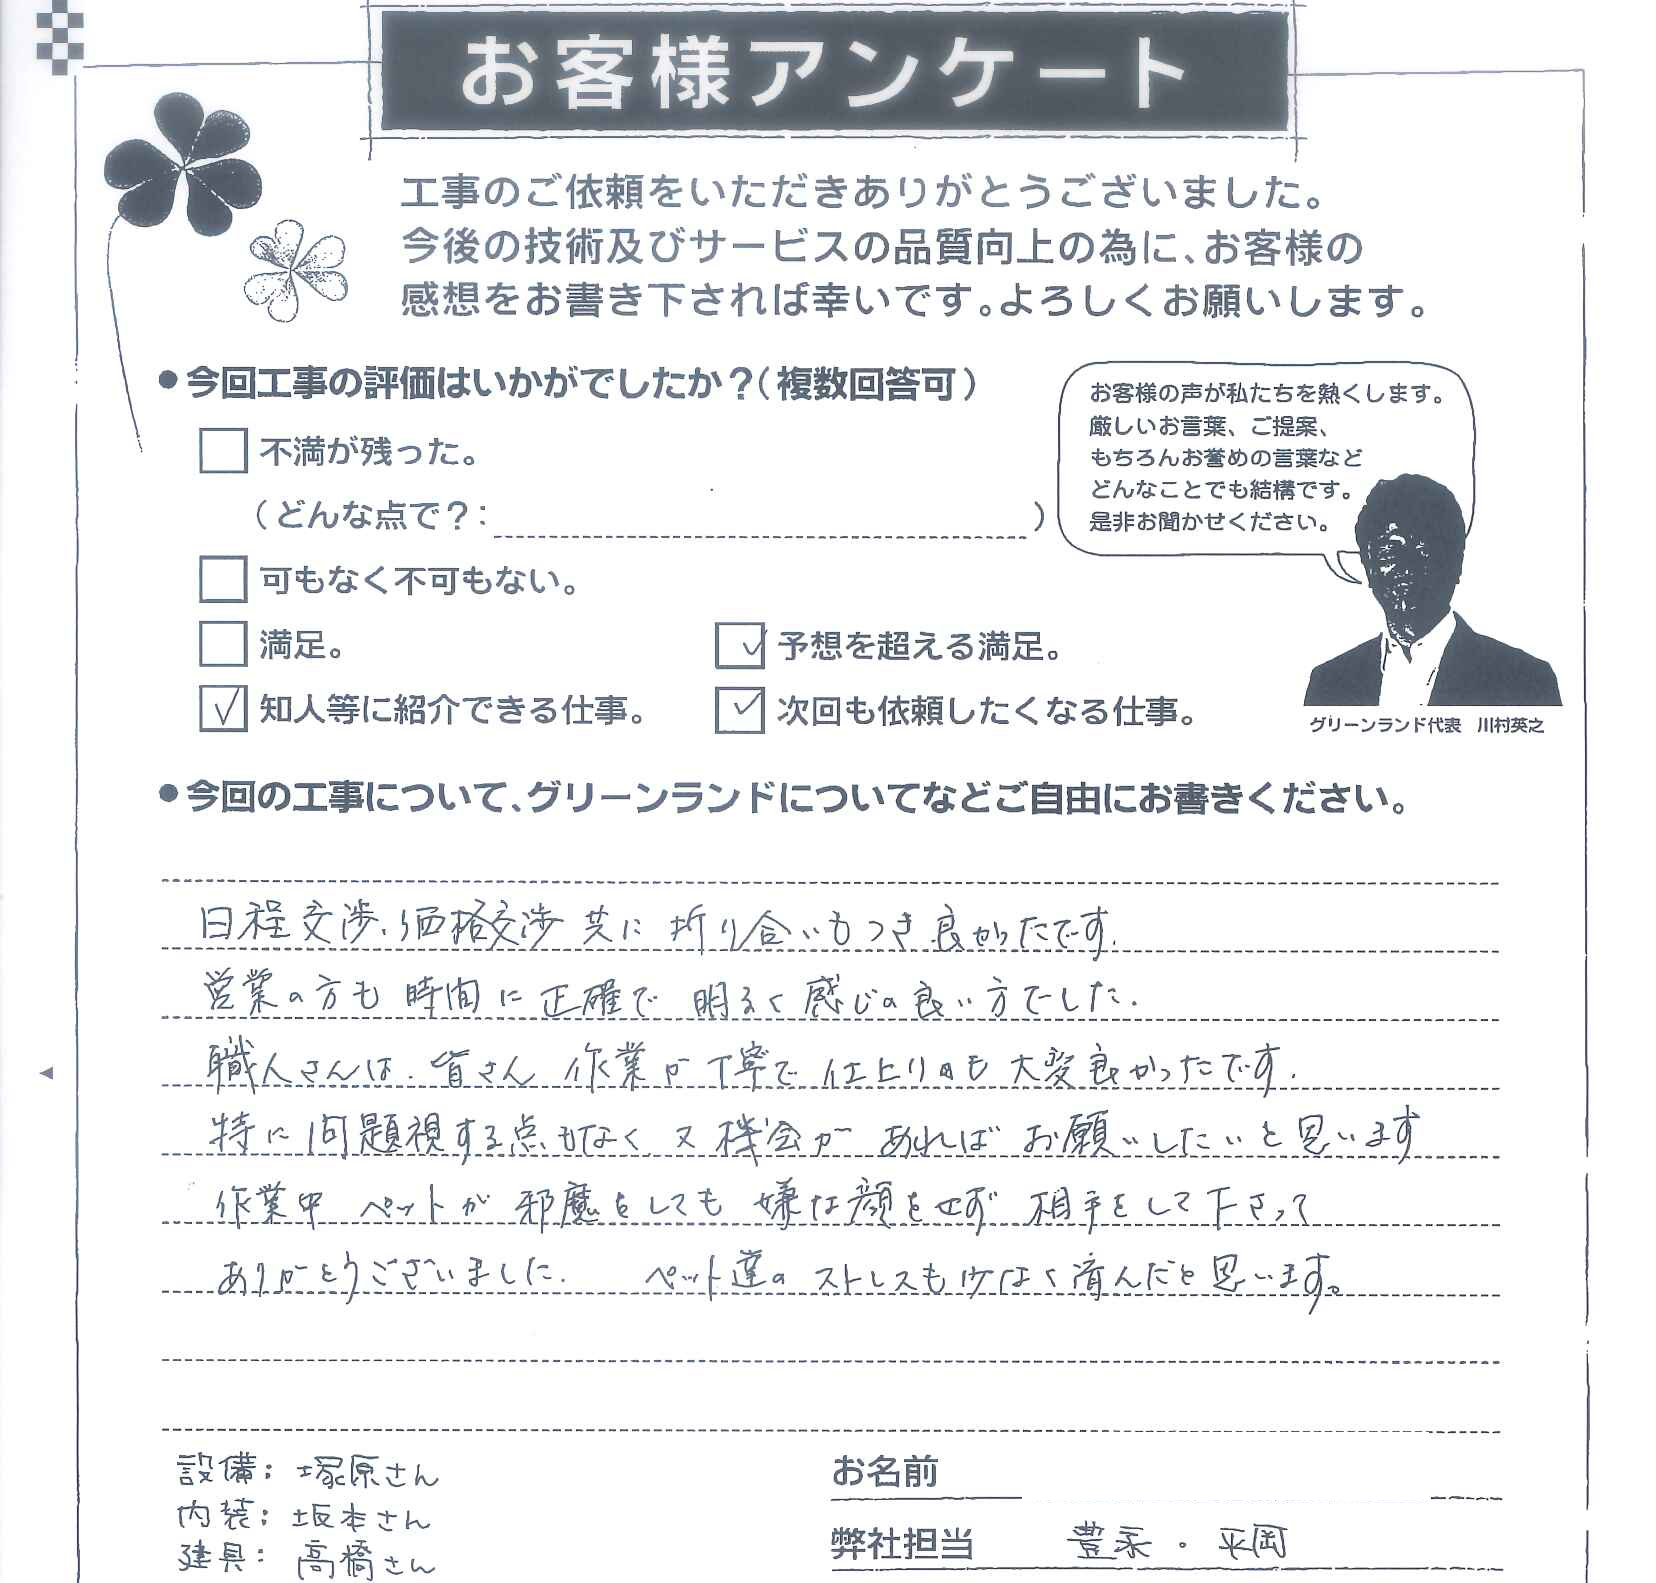 お客様アンケート
工事のご依頼をいただきありがとうございました。
今後の技術及びサービスの品質向上の為に、お客様の
感想をお書き下されば幸いです。よろしくお願いします。
●今回工事の評価はいかがでしたか？（複数回答可）
不満が残った。
（どんな点で？：　　　）
可もなく不可もない。
満足。
予想を超える満足。
知人等に紹介できる仕事。
次回も依頼したくなる仕事。
お客様の声が私たちを熱くします。
厳しいお言葉、ご提案、
もちろんお誉めの言葉など
どんなことでも結構です。
是非お聞かせください。
グリーンランド代表　川村英之
●今回の工事について、グリーンランドについてなどご自由にお書きください。
日程交渉、価格交渉 共に 折り合いもつき 良かったです.
営業の方も 時間に 正確で 明るく 感じの良い方でした.
職人さんは. 皆さん 作業が丁寧で 仕上りも 大変良かったです.
特に 問題視する点もなく 又 機会が あればお願いしたいと思います
作業中 ペットが 邪魔をしても 嫌な顔をせず 相手をして下さって
ありがとうございました. ペット達の ストレスも少なく済んだと思います。
設備: 塚原さん
内装: 坂本さん
建具: 高橋さん
お名前
弊社担当　豊永・平岡